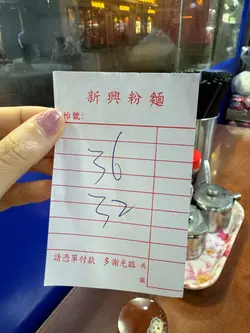 新興粉麵
枱號：
36
32
請憑單付款 多謝光臨 共
號